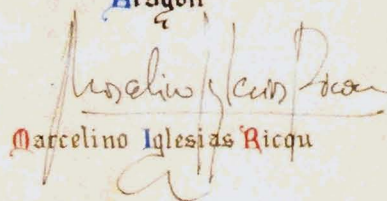 Aragón
Marcelino Iglesias Ricou
Marcelino Iglesias Ricqu